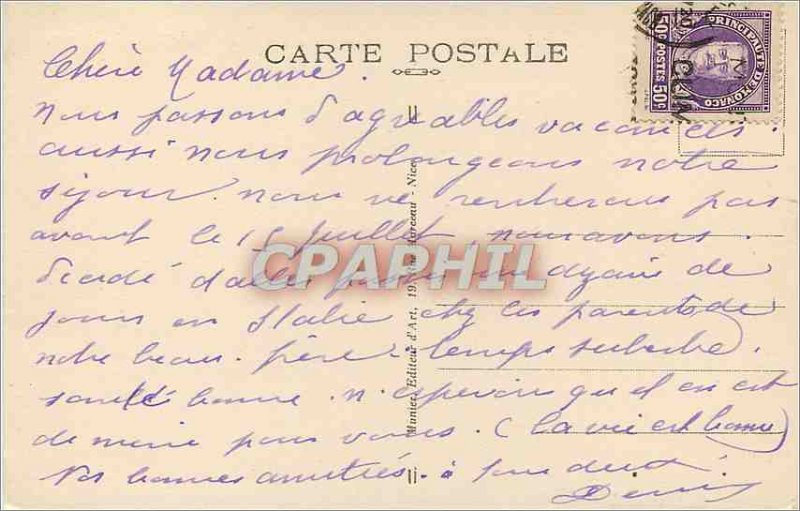 CARTE POSTALE
PRINCIPAUTÉ DE MONACO
50c POSTES 50c
Chère Madame.
Nous passons d'agréables vacances.
aussi nous prolongeons notre
séjour. nous ne rentrerons pas
avant le 15 Juillet, nous avons
décidé d'aller passer une dizaine de
jours en Italie chez les parents de
notre beau-frère. temps superbe.
santé bonne. n. espérons qu'il en est
de même pour vous. (la vie est bonne)
Nos bonnes amitiés. à
Denis
Munier, Editeur d'Art, 19, Rue Marceau - Nice
CPAPHIL